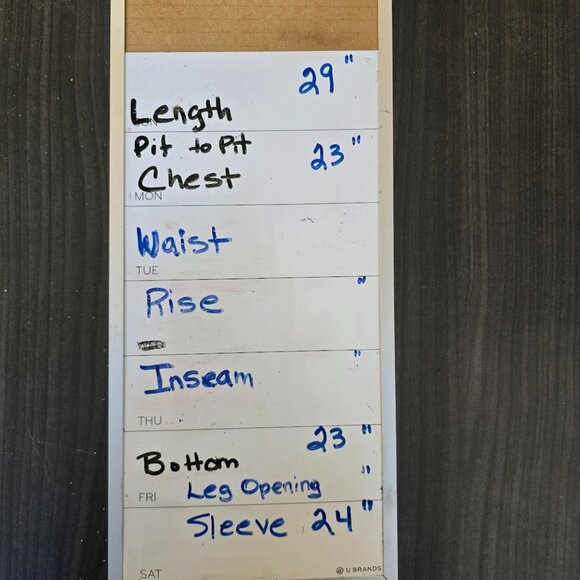 29"
Length
Pit to Pit
23"
Chest
MON
Waist
TUE
Rise "
Inseam "
THU
23"
Bottom
FRI Leg Opening "
Sleeve 24"
SAT U BRANDS